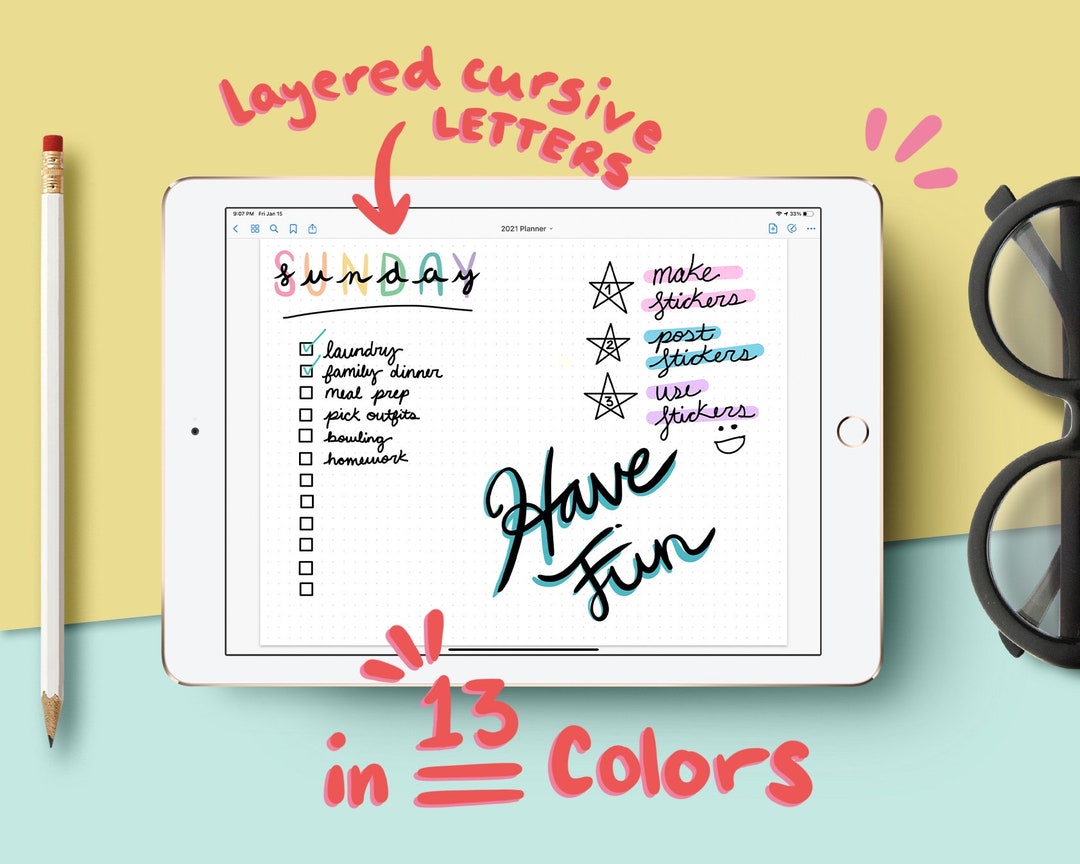 Layered cursive
LETTERS
9:07 PM Fri Jan 15
33%
2021 Planner
SUNDAY
sunday
laundry
family dinner
meal prep
pick outfits
bowling
homework
1
make
stickers
2
post
stickers
3
use
stickers
Have
Fun
in 13 Colors